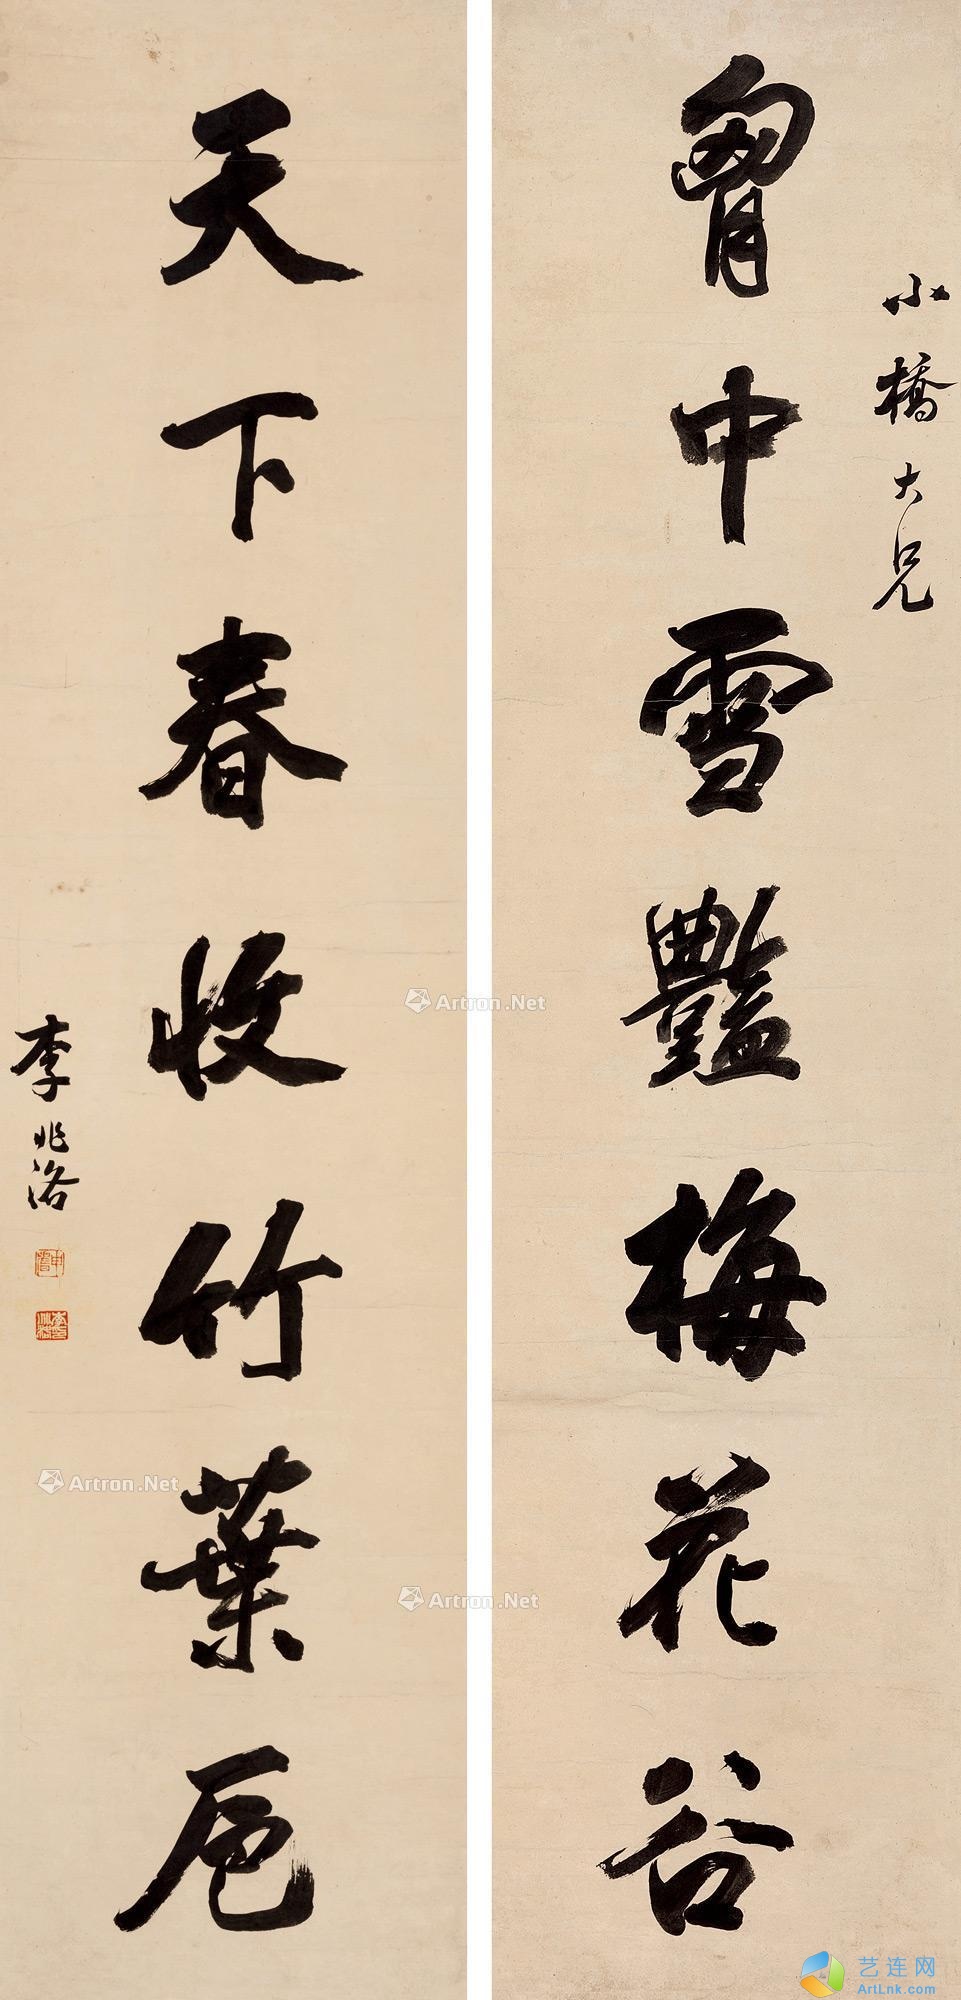 小橋大兄
胷中雪豔梅花谷
天下春收竹葉卮
李兆洛
Artron.Net
Artron.Net
Artron.Net
艺连网
ArtLnk.com